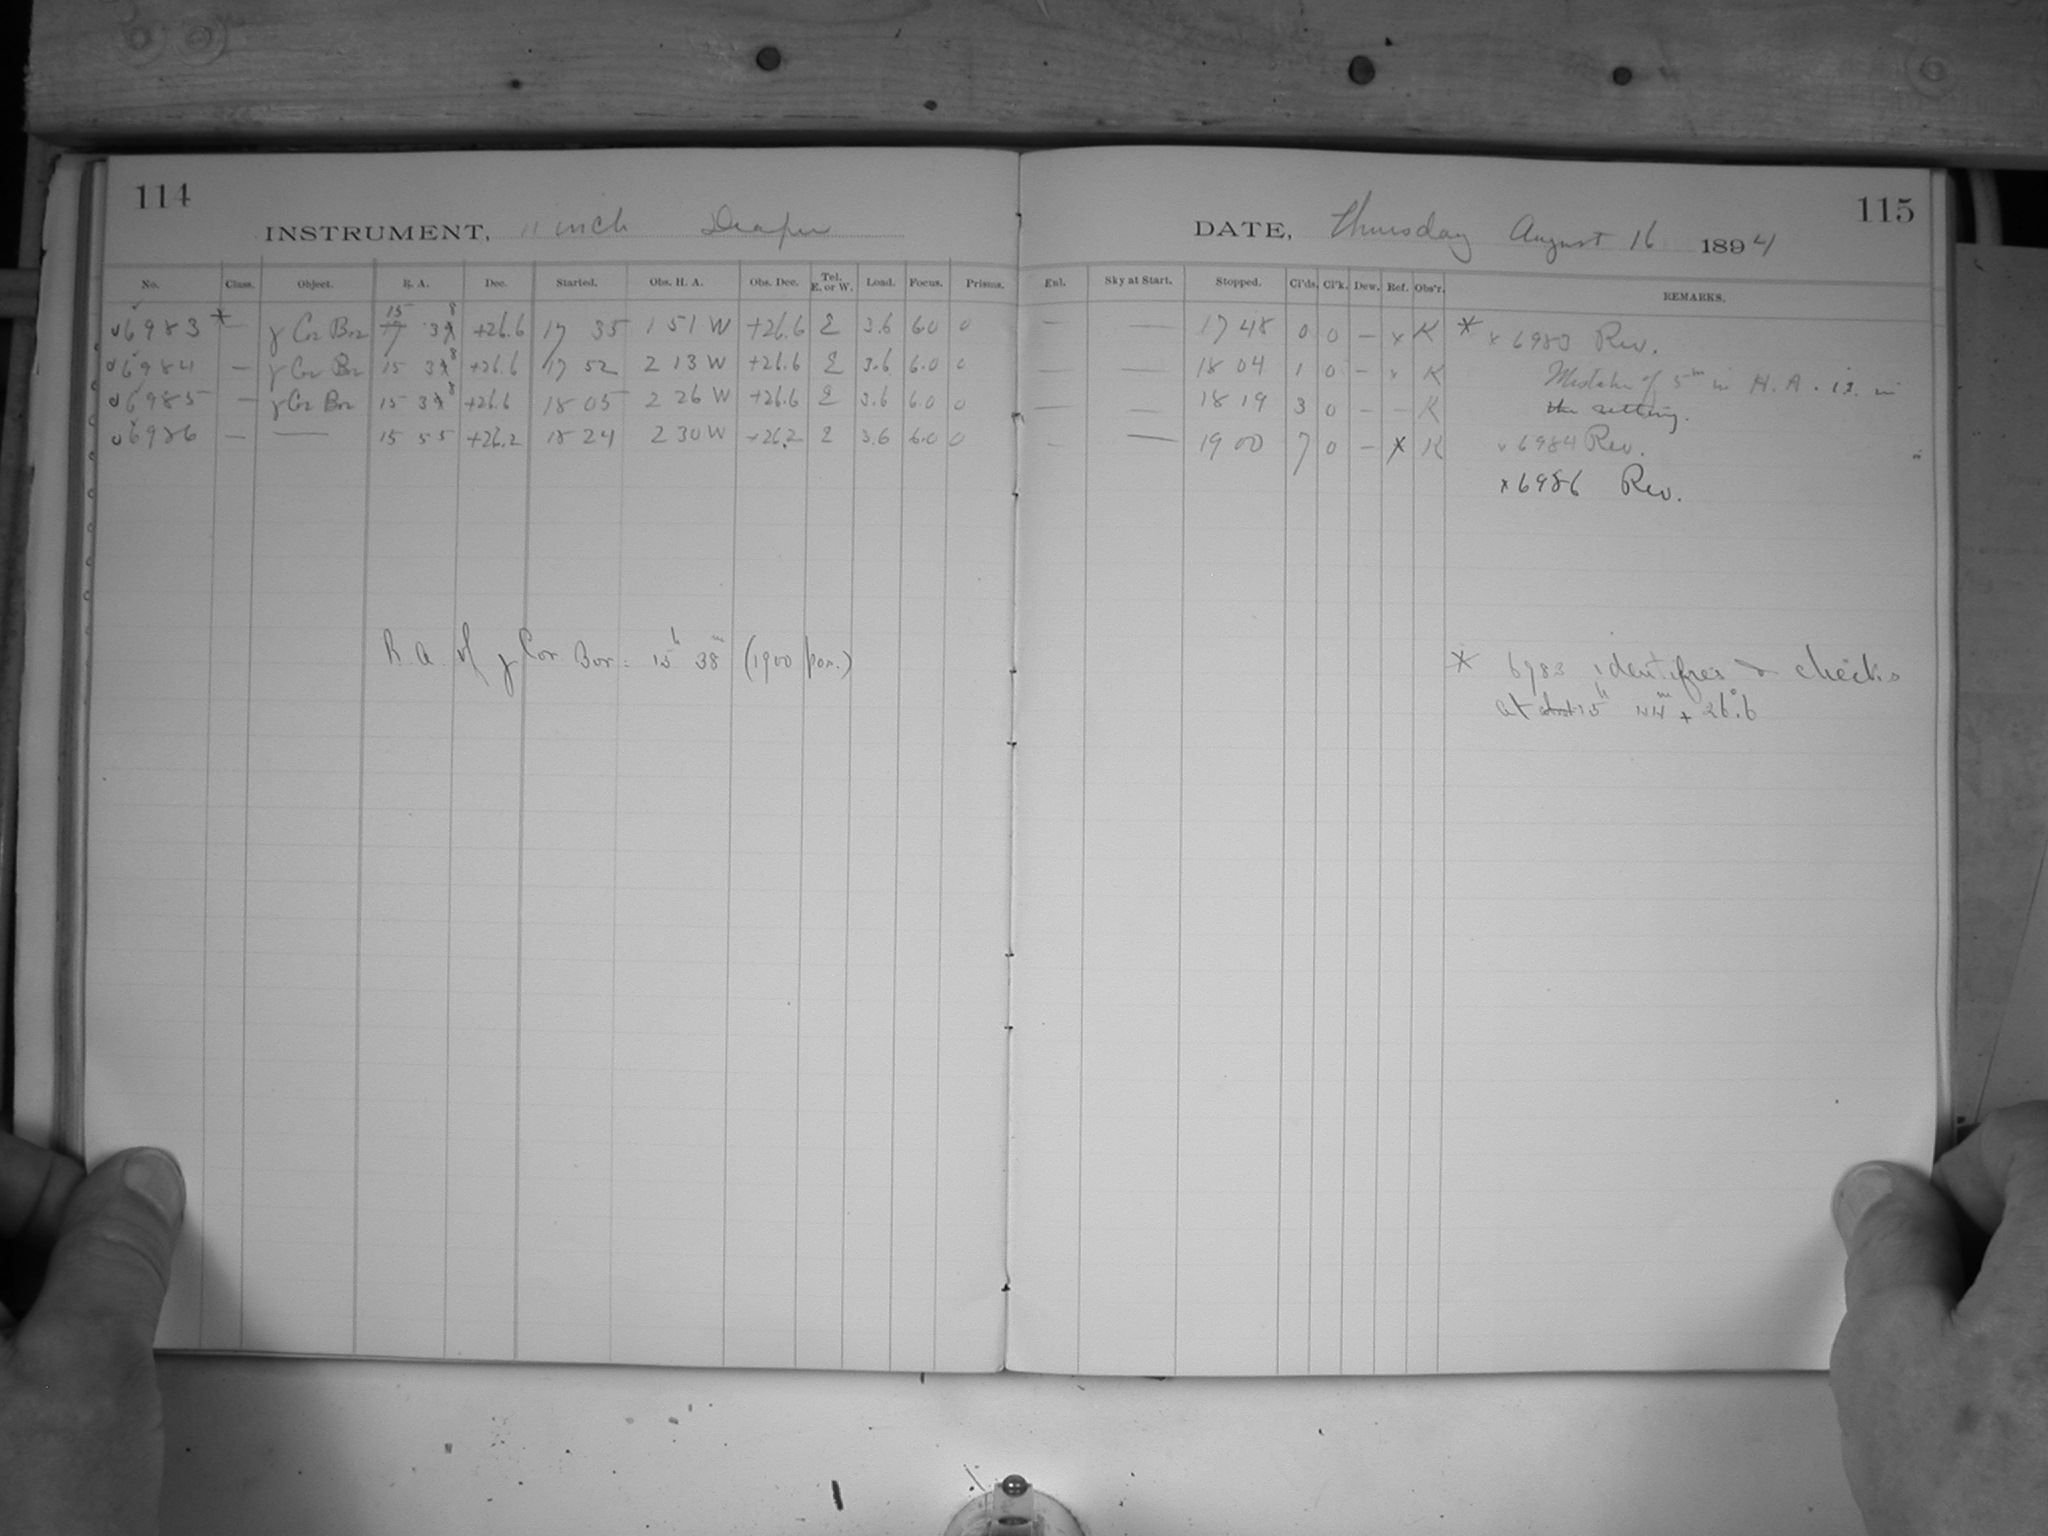 114
INSTRUMENT, 11 inch Draper
No. Class. Object. R. A. Dec. Started. Obs. H. A. Obs. Dec. Tel. E. or W. Load. Focus. Prisms.
15 8
6983 * — γ Cor Bor 17 39 +26.6 17 35 1 51 W +26.6 E 3.6 6.0 0
6984 — γ Cor Bor 15 39 8 +26.6 17 52 2 13 W +26.6 E 3.6 6.0 0
6985 — γ Cor Bor 15 39 8 +26.6 18 05 2 26 W +26.6 E 3.6 6.0 0
6986 — — 15 55 +26.2 18 24 2 30 W +26.2 E 3.6 6.0 0
R. A. of γ Cor. Bor: 15h 38m (1900 pos.)
115
DATE, Thursday August 16 1894
Enl. Sky at Start. Stopped. Cl'ds. Cl'k. Dew. Ref. Obs'r. REMARKS.
— — 17 48 0 0 — x K * x 6983 Rev.
— — 18 04 1 0 — x K Mistake of 5m in H. A. i.e. in
— — 18 19 3 0 — — K the setting.
— — 19 00 7 0 — x K x 6984 Rev.
x 6986 Rev.
* 6983 identifies & checks
at about 15h 44m + 26°.6